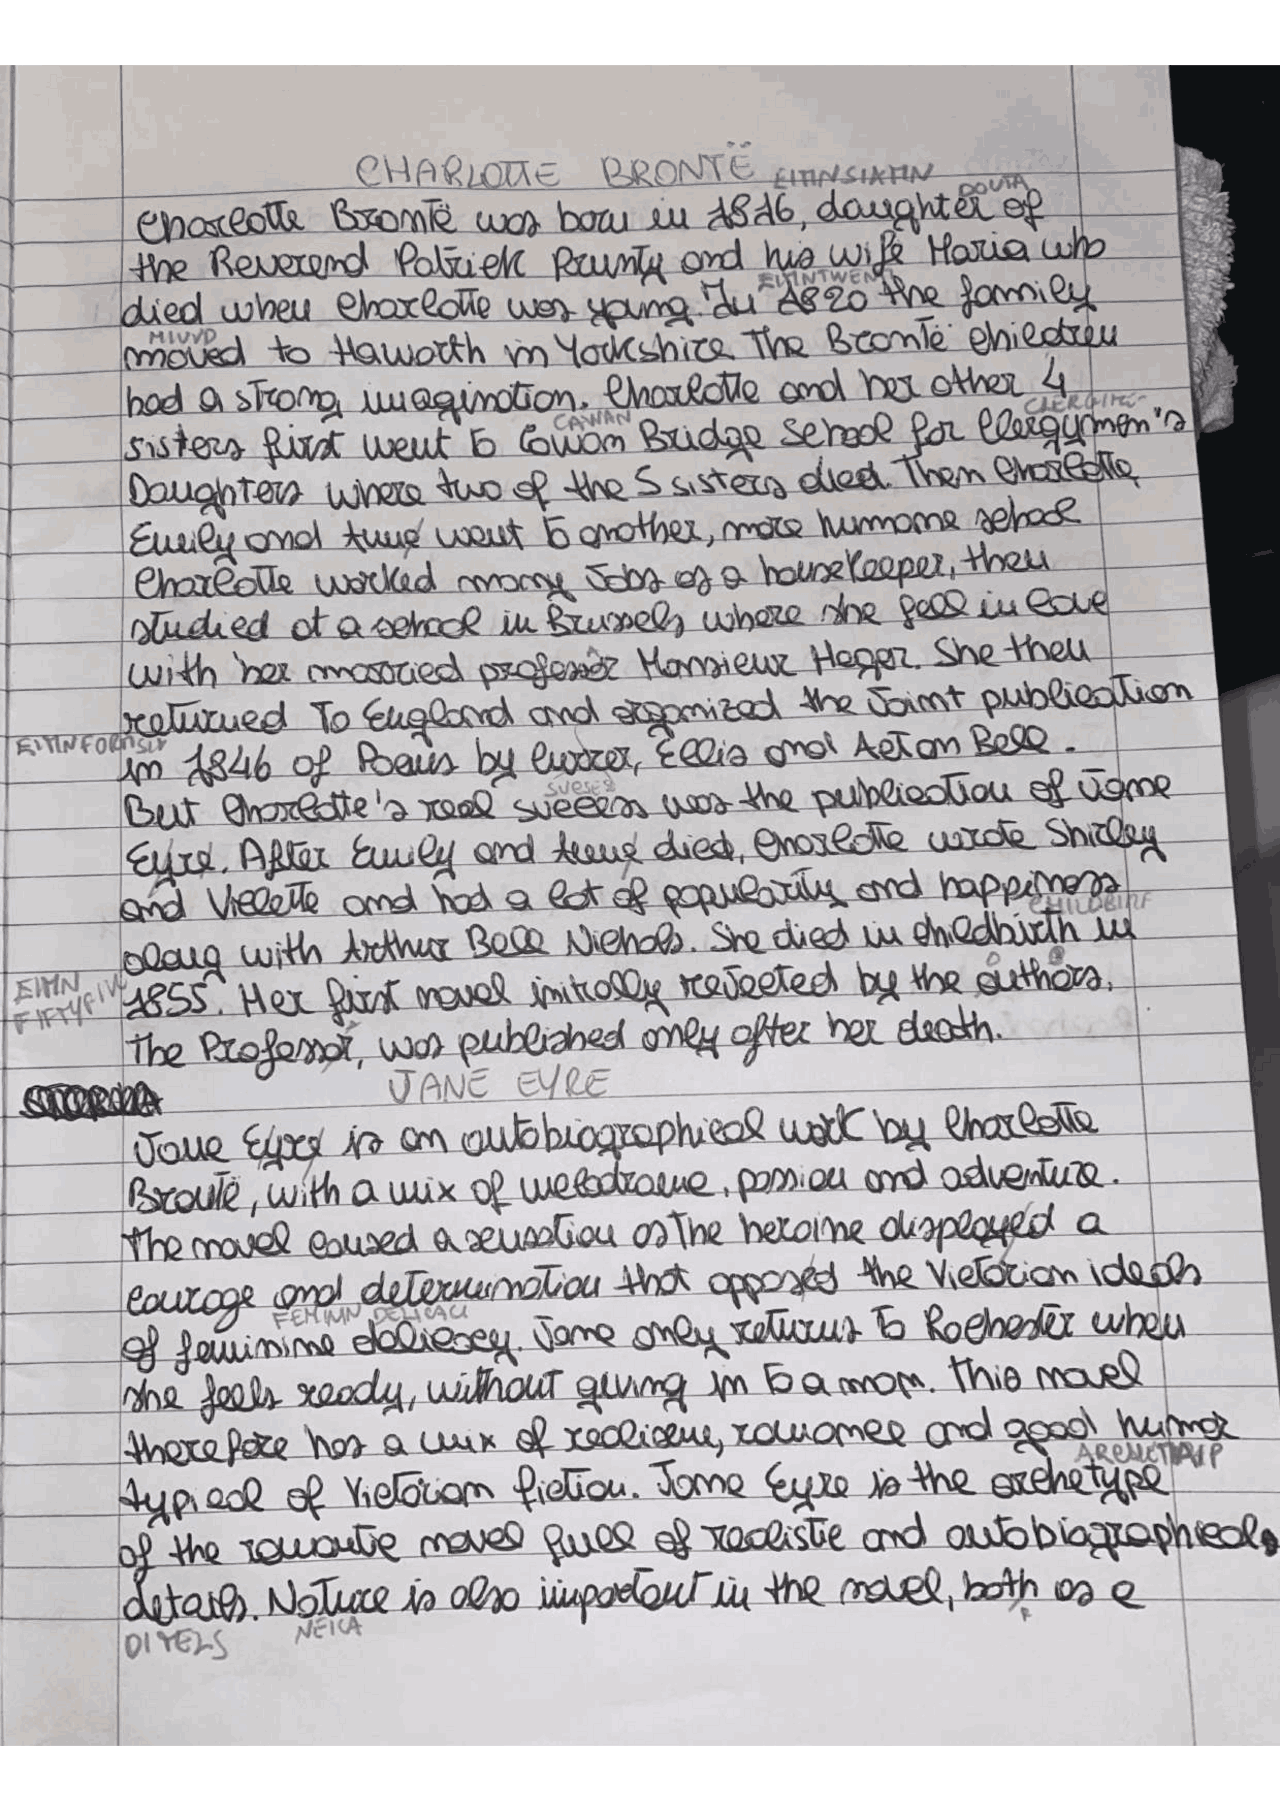 CHARLOTTE BRONTË
EITIN SIXTIN
DOUTA
Charlotte Brontë was born in 1816, daughter of
the Reverend Patrick Prunty and his wife Maria who
EITINTWENTI
died when Charlotte was young. In 1820 the family
MIUVD
moved to Haworth in Yorkshire. The Brontë children
had a strong imagination. Charlotte and her other 4
CAWAN
sisters first went to Cowan Bridge School for Clergymen's
Daughters where two of the 5 sisters died. Then Charlotte,
Emily and Anne went to another, more humane school
Charlotte worked many Jobs as a housekeeper, then
studied at a school in Brussels where she fell in love
with her married professor Monsieur Heger. She then
returned To England and organized the Joint publication
in 1846 of Poems by Currer, Ellis and Acton Bell.
SUCSES
But Charlotte's real success was the publication of Jane
Eyre. After Emily and Anne died, Charlotte wrote Shirley
and Villette and had a lot of popularity and happiness
CHILDBIRF
along with Arthur Bell Nichols. She died in childbirth in
EITIN
FIFTYFIV
1855. Her first novel initially rejected by the authors,
The Professor, was published only after her death.
JANE EYRE
Jane Eyre is an autobiographical work by Charlotte
Brontë, with a mix of melodrame, passion and adventure.
The novel caused a sensation as The heroine displayed a
courage and determination that opposed the Victorian ideals
FEMININ DELICACI
of feminine delicacy. Jane only returns to Rochester when
she feels ready, without giving in to a man. This novel
therefore has a mix of realism, romance and good humor
typical of Victorian fiction. Jane Eyre is the archetype
of the romantic novel full of realistic and autobiographical
details. Nature is also important in the novel, both as a
DITELS
NEICA